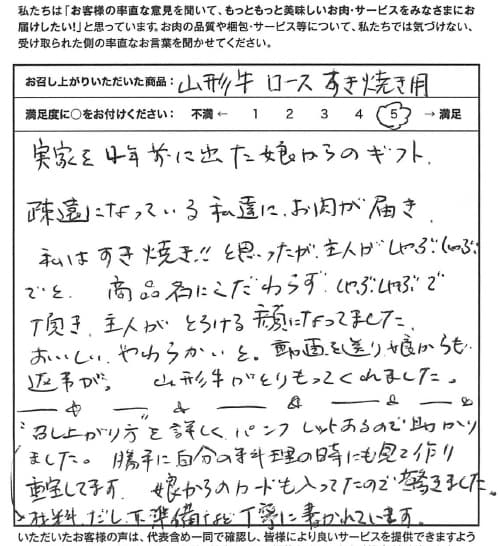 私たちは「お客様の率直な意見を聞いて、もっともっと美味しいお肉・サービスをみなさまにお
届けしたい!」と思っています。お肉の品質や梱包・サービス等について、私たちでは気づけない、
受け取られた側の率直なお言葉を聞かせてください。
お召し上がりいただいた商品: 山形牛 ロース すき焼き用
満足度に○をお付けください: 不満 ← 1 2 3 4 5 → 満足
実家を4年前に出た娘からのギフト.
疎遠になっている私達に、お肉が届き、
私はすき焼き!!と思ったが、主人がしゃぶしゃぶ
でと、商品名にこだわらず、しゃぶしゃぶで
頂き、主人がとろける顔になってました。
おいしい、やわらかいと。動画を送り、娘からも
返事が。 山形牛がとりもってくれました。
"召し上がり方"を詳しくパンフレットあるので助かり
ました。勝手に自分の料理の時にも見て作り
重宝してます。娘からのカードも入ってたので驚きました。
材料、だし、下準備など丁寧に書かれています。
いただいたお客様の声は、代表含め一同で確認し、皆様により良いサービスを提供できますよう